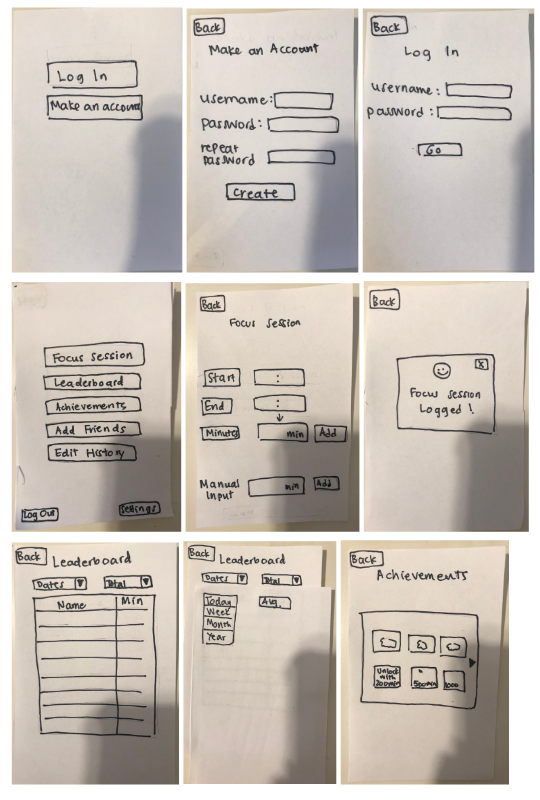 Log In
Make an account
Back
Make an Account
username:
password:
repeat password
Create
Back
Log In
username:
password:
Go
Focus Session
Leaderboard
Achievements
Add Friends
Edit History
Log Out
Settings
Back
Focus Session
Start :
End :
Minutes min Add
Manual Input min Add
Back
x
Focus Session
Logged!
Back Leaderboard
Dates Total
Name Min
Back Leaderboard
Dates Total
Today Avg.
Week
Month
Year
Back
Achievements
Unlock with 200min
500min
1000